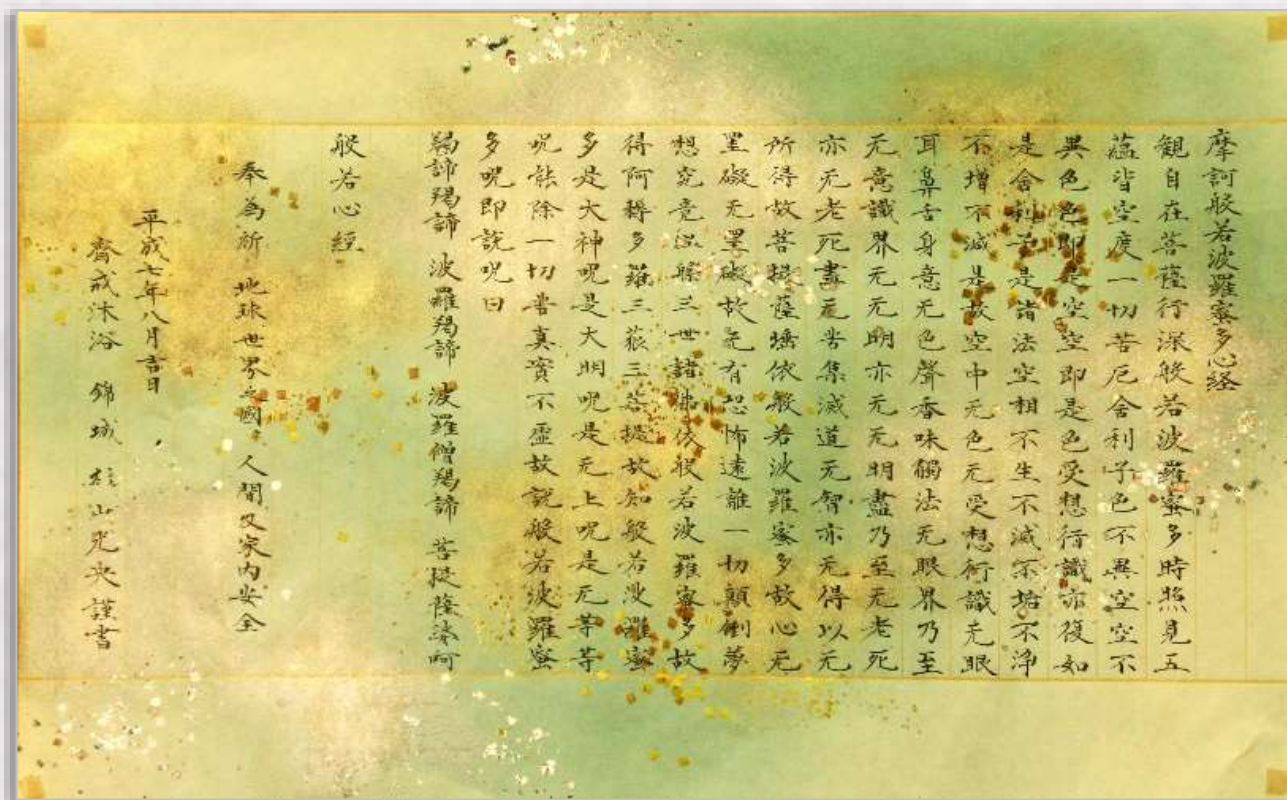 摩訶般若波羅蜜多心経
観自在菩薩行深般若波羅蜜多時照見五
蘊皆空度一切苦厄舎利子色不異空空不
異色色即是空空即是色受想行識亦復如
是舎利子是諸法空相不生不滅不垢不浄
不増不滅是故空中无色无受想行識无眼
耳鼻舌身意无色聲香味觸法无眼界乃至
无意識界无无明亦无无明盡乃至无老死
亦无老死盡无苦集滅道无智亦无得以无
所得故菩提薩埵依般若波羅蜜多故心无
罣礙无罣礙故无有恐怖遠離一切顛倒夢
想究竟涅槃三世諸佛依般若波羅蜜多故
得阿耨多羅三藐三菩提故知般若波羅蜜
多是大神呪是大明呪是无上呪是无等等
呪能除一切苦真實不虚故説般若波羅蜜
多呪即説呪曰
羯諦羯諦 波羅羯諦 波羅僧羯諦 菩提薩婆呵
般若心經
奉為所 地球世界之國 人間及家内安全
平成七年八月吉日
齋戒沐浴 錦城 山光央謹書